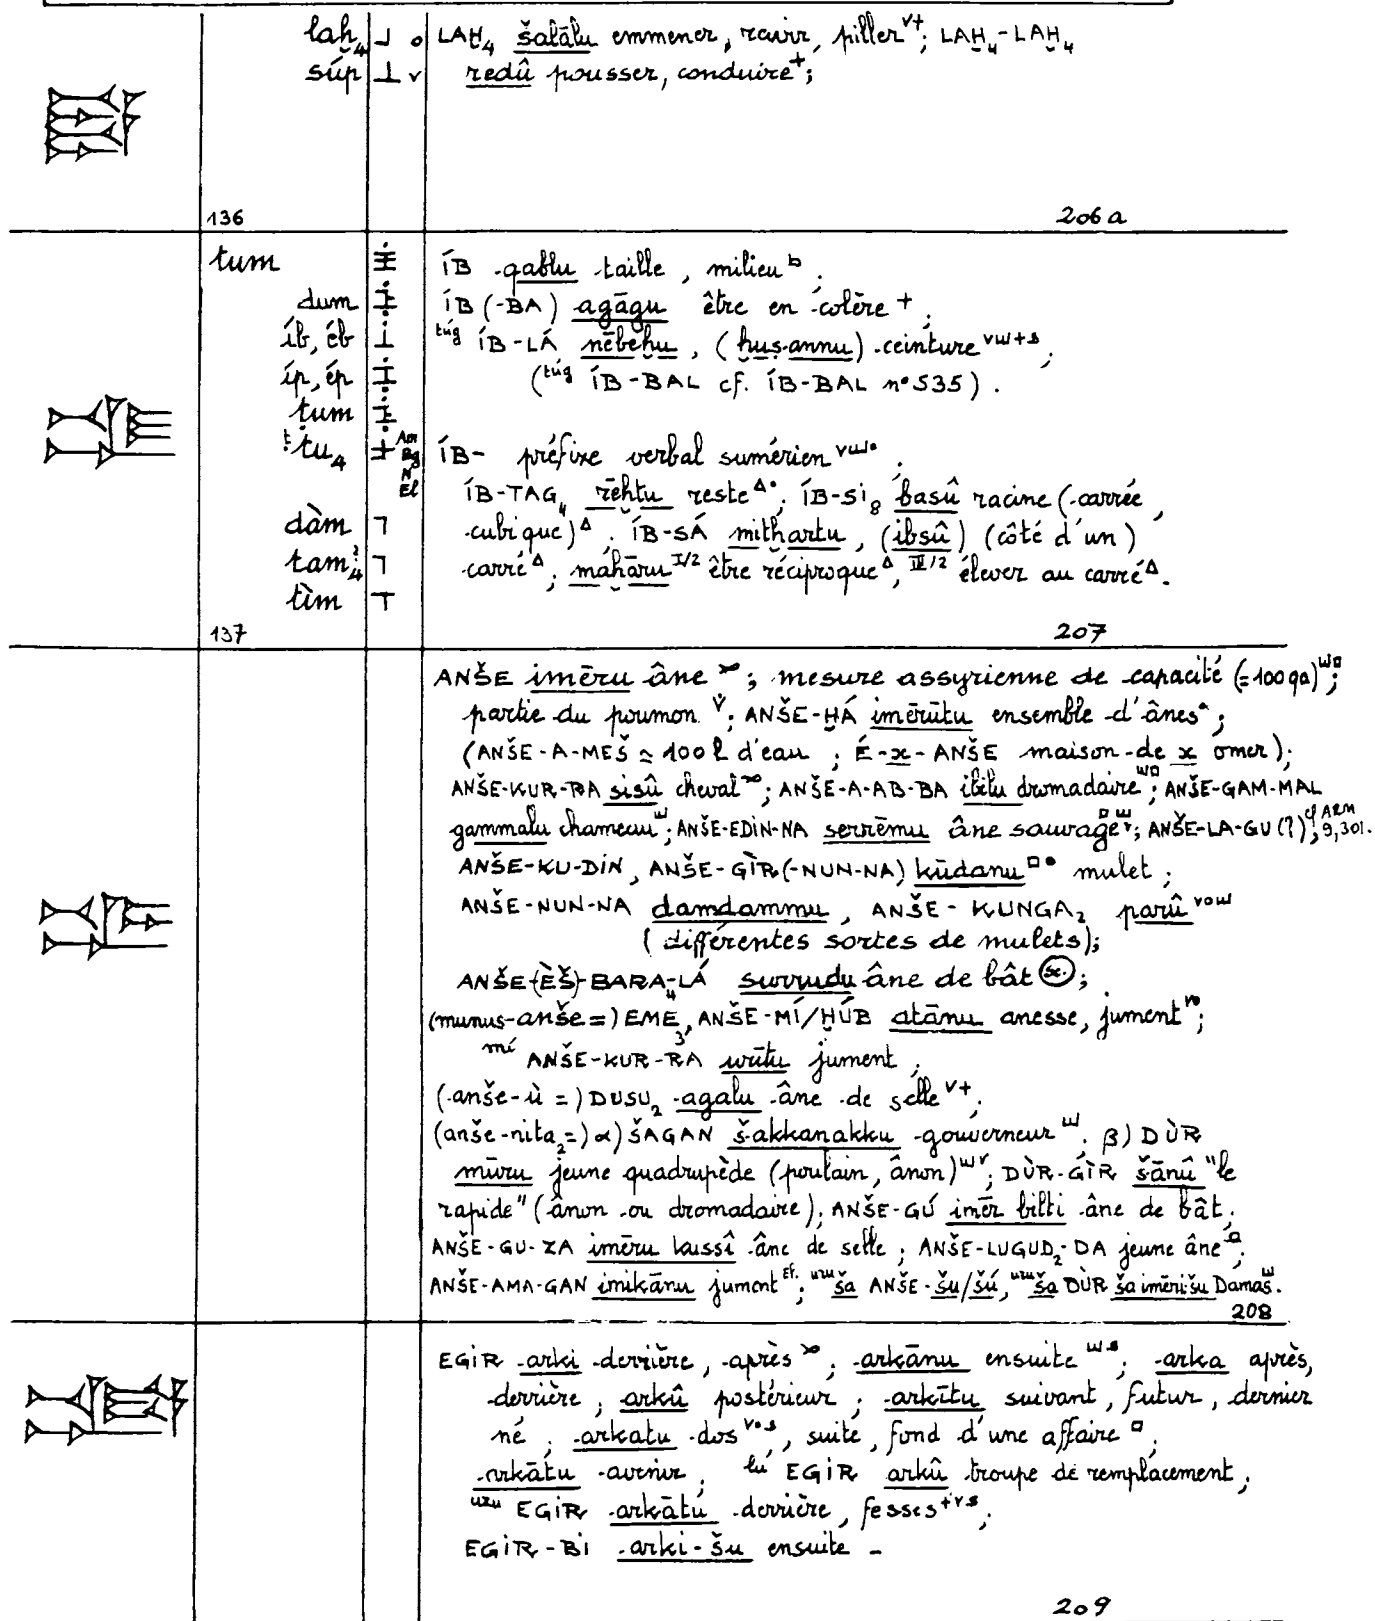 laḫ₄ LAḪ₄ šalālu emmener, ravir, piller v+; LAḪ₄-LAḪ₄
súp v redû pousser, conduire +;
136 206a
tum ÍB qablu taille, milieu b;
dum ÍB(-BA) agāgu être en colère +;
íb, éb túg ÍB-LÁ nēbeḫu, (ḫuṣannu) ceinture vw+s;
íp, ép (túg ÍB-BAL cf. ÍB-BAL n° 535).
ṭum
ṭu₄ ÍB- préfixe verbal sumérien
ÍB-TAG₄ rēḫtu reste Δ•; ÍB-Si₈ basû racine (carrée,
dàm cubique) Δ; ÍB-SÁ mitḫartu, (ibsû) (côté d'un)
tam₄? carré Δ; maḫāru I/2 être réciproque Δ, III/2 élever au carré Δ.
tìm
137 207
ANŠE imēru âne; mesure assyrienne de capacité (= 100 qa);
partie du poumon v; ANŠE-ḪÁ imērūtu ensemble d'ânes;
(ANŠE-A-MEŠ ≃ 100 l d'eau; É-x-ANŠE maison de x omer);
ANŠE-KUR-RA sisû cheval; ANŠE-A-AB-BA ibilu dromadaire; ANŠE-GAM-MAL
gammalu chameau; ANŠE-EDIN-NA serrēmu âne sauvage; ANŠE-LA-GU(?) cf ARM 9,301.
ANŠE-KU-DIN, ANŠE-GÌR(-NUN-NA) kūdanu mulet;
ANŠE-NUN-NA damdammu, ANŠE-KUNGA₂ parû
(différentes sortes de mulets);
ANŠE-(ÈŠ)-BARA₄-LÁ surrudu âne de bât (sc.);
(munus-anše=) EME₃, ANŠE-MÍ/ḪÚB atānu anesse, jument vo;
mí ANŠE-KUR-RA urītu jument;
(anše-ù =) DUSU₂ agalu âne de selle v+;
(anše-nita₂=) α) ŠAGAN šakkanakku gouverneur; β) DÙR
mūru jeune quadrupède (poulain, ânon); DÙR-GÌR šānû "le
rapide" (ânon ou dromadaire); ANŠE-GÚ imēr bilti âne de bât;
ANŠE-GU-ZA imēru kussî âne de selle; ANŠE-LUGUD₂-DA jeune âne;
ANŠE-AMA-GAN imikānu jument El.; uzu ša ANŠE-šu/šú, uzu ša DÙR ša imērišu Damas.
208
EGIR arki derrière, après; arkānu ensuite; arka après,
derrière; arkû postérieur; arkītu suivant, futur, dernier
né; arkatu dos, suite, fond d'une affaire;
arkātu avenir; lú EGIR arkû troupe de remplacement;
uzu EGIR arkātu derrière, fesses;
EGIR-BI arki-šu ensuite -
209